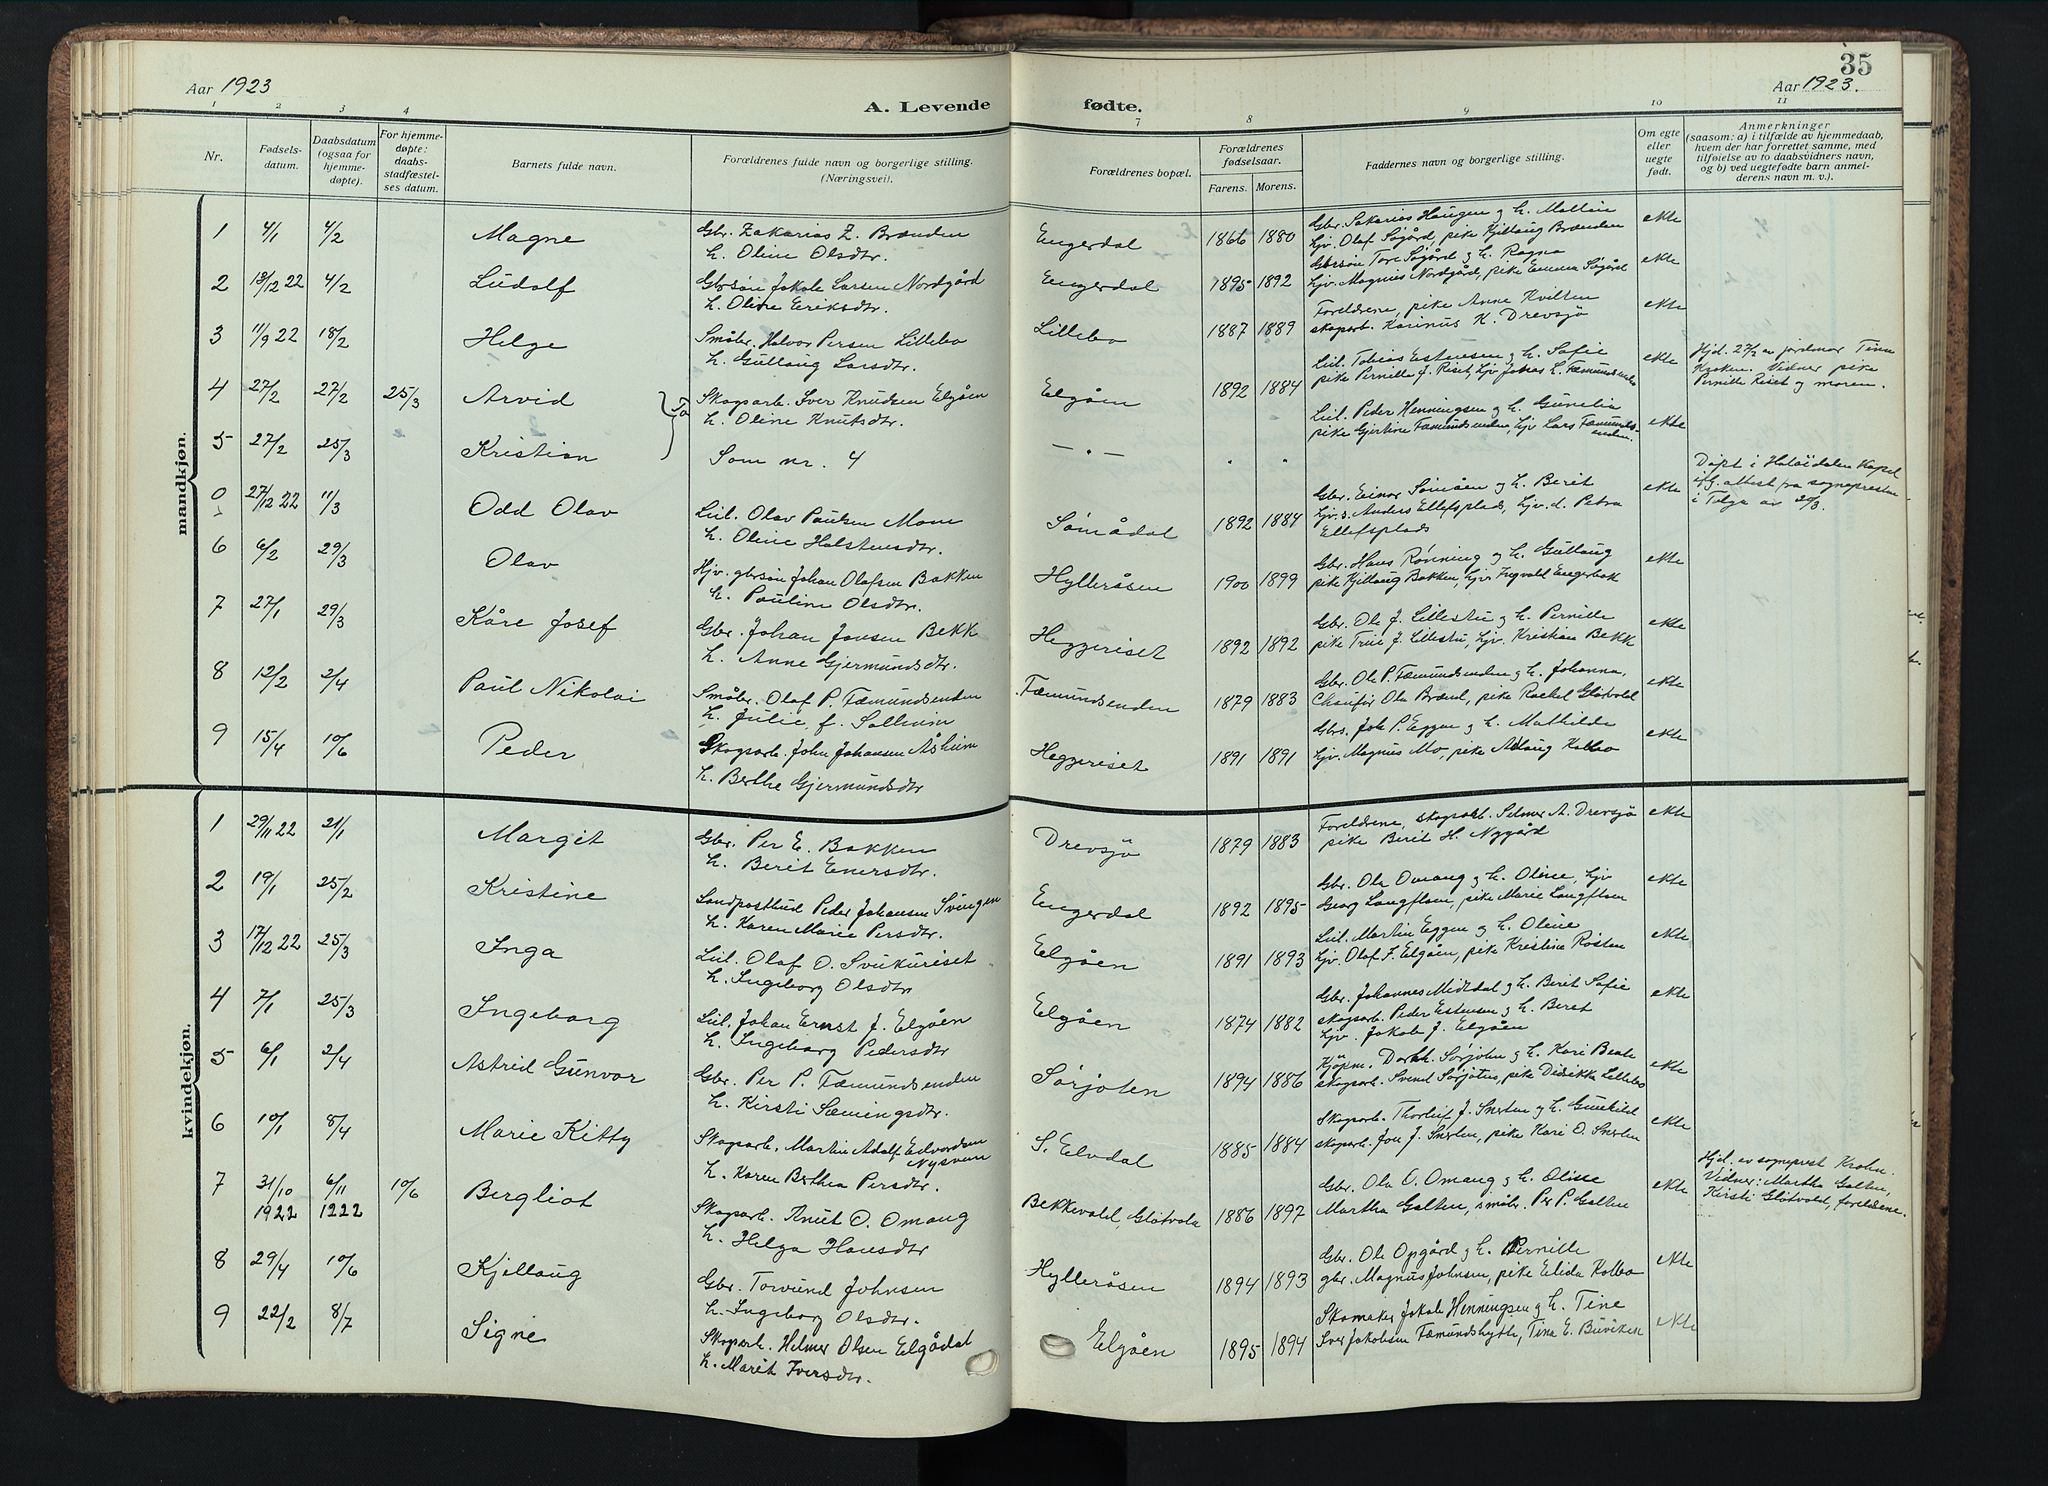 Aar 1923
A. Levende
fødte.
35
Aar 1923.
1 2 3 4 7 8 9 10 11
Nr.
Fødsels-
datum.
Daabsdatum
(ogsaa for
hjemme-
døpte).
For hjemme-
døpte:
daabs-
stadfæstel-
ses datum.
Barnets fulde navn.
Forældrenes fulde navn og borgerlige stilling.
(Næringsvei).
Forældrenes bopæl.
Forældrenes
fødselsaar.
Farens. Morens.
Faddernes navn og borgerlige stilling.
Om egte
eller
uegte
født.
Anmerkninger
(saasom: a) i tilfælde av hjemmedaab,
hvem der har forrettet samme, med
tilføielse av to daabsvidners navn,
og b) ved uegtefødte barn anmel-
derens navn m. v.).
mandkjøn.
1 4/1 4/2 Magne Gbr. Zakarias Z. Brænden
h. Oline Olsdtr. Engerdal 1866 1880 Gbr. Sakarias Haugen og h. Mallin
hjv. Olaf Søgård, pike Kjellaug Brænden ekte
2 18/12 22 4/2 Ludolf Gbrsøn Jakob Larsen Nordgård
h. Oline Eriksdtr. Engerdal 1895 1892 Gbrsøn Tore Søgård og h. Ragna
hjv. Magnus Nordgård, pike Emma Søgård ekte
3 11/9 22 18/2 Helge Småbr. Halvor Persen Lillebo
h. Gullaug Larsdtr. Lillebo 1887 1889 Foreldrene, pike Anne Kvilten
skogarb. Karinus K. Drevsjø ekte
4 27/2 27/2 25/3 Arvid Skogsarb. Iver Knudsen Elgåen
h. Oline Knutsdtr. Elgåen 1892 1884 Lul. Tobias Estensen og h. Sofie
pike Pernille J. Riset, hjv Johas L. Fæmundsenden ekte Hjd. 27/2 av jordmor Tina
Kroken. Vidner pike
Pernille Riset og moren.
5 27/2 25/3 Kristian Som nr. 4 — " — " " Lul. Peder Henningsen og h. Gunelia
pike Gjertine Fæmundsenden, hjv Lars Fæmunds-
enden. ekte
0 27/12 22 11/3 Odd Olav Lul. Olav Paulsen Moen
h. Oline Halstensdtr. Sømådal 1892 1884 Gbr. Einar Sømåen og h. Berit
hjv. s. Anders Ellefsplads, hjv. d. Petra
Ellefsplads ekte Døpt i Holøidalen Kapel
ifg. attest fra sognepresten
i Tolga av 20/3.
6 6/2 29/3 Olav Hjv. gbrsøn Johan Olafsen Bakken
h. Pauline Olsdtr. Hylleråsen 1900 1899 Gbr. Hans Rønning og h. Gullaug
pike Kjellaug Bakken, hjv Ingvald Engerbak ekte
7 27/1 29/3 Kåre Josef Gbr. Johan Jonsen Bekk
h. Anne Gjermundsdtr. Heggeriset 1892 1892 Gbr. Ole J. Lillestu og h. Pernille
pike Trui J. Lillestu, hjv. Kristian Bekk ekte
8 12/2 2/4 Paul Nikolai Småbr. Olaf P. Fæmundsenden
h. Julie, f. Solheim Fæmundsenden 1879 1883 Gbr. Ole P. Fæmundsenden og h. Johanna,
Chaufør Ola Brænd, pike Rachel Gløtvold ekte
9 15/4 10/6 Peder Skogsarb. John Johansen Åsheim
h. Berthe Gjermundsdtr Heggeriset 1891 1891 Gbrs. Joh P. Eggen og h. Mathilde
hjv. Magnus Mo, pike Aslaug Kolbo ekte
kvindekjøn.
1 29/11 22 21/1 Margit Gbr. Per E. Bakken
h. Berit Enersdtr. Drevsjø 1879 1883 Foreldrene, skogsarb. Selmer A. Drevsjø
pike Berit H. Nygård ekte
2 19/1 25/2 Kristine Landpostbud Peder Johansen Svingen
h. Karen Marie Persdtr. Engerdal 1892 1895 Gbr. Ole Omang og h. Oline, hjv
Georg Langfloen, pike Marie Langfloen ekte
3 17/12 22 25/3 Inga Lul. Olaf O. Svukuriset
h. Ingeborg Olsdtr Elgåen 1891 1893 Lul. Martin Eggen og h. Oline
hjv. Olaf J. Elgåen, pike Kristine Røsten ekte
4 7/1 25/3 Ingeborg Lul. Johan Ernst J. Elgåen
h. Ingeborg Pedersdtr Elgåen 1874 1882 Gbr. Johannes Midtdal og h. Berit Sofie
skogsarb. Peder Estensen og h. Beret
hjv. Jakob J. Elgåen ekte
5 6/1 2/4 Astrid Gunvor Gbr. Per P. Fæmundsenden
h. Kirsti Sæmingsdtr. Sørjoten 1894 1886 Kjøpm. Dorth. Sørjoten og h. Kari Beate
skogsarb. Svend Sørjoten, pike Didrikka Lillebo ekte
6 10/1 8/4 Marie Kitty Skogsarb. Martin Adolf Edvardsen
Nysveen
h. Karen Berthea Persdtr. S. Elvdal 1885 1884 Skogsarb. Thorleif J. Snerten og h. Gunhild
skogsarb. Jon J. Snerten, pike Kari O. Snerten ekte
7 31/10 1922 6/11 1222 10/6 Bergliot Skogsarb. Knut O. Omang
h. Helga Hansdtr Bekkevold, Gløtvola 1886 1897 Gbr. Ola O. Omang og h. Olisse
Martha Galten, småbr. Per P. Galten ekte Hjd. av sogneprest Krohn.
Vidner: Martha Galten,
Kirsti Gløtvold, foreldrene.
8 29/4 10/6 Kjellaug Gbr. Torvund Johnsen
h. Ingeborg Olsdtr. Hylleråsen 1894 1893 Gbr. Ole Opgård og h. Pernille
gbr. Magnus Johnsen, pike Elida Kolbo ekte
9 22/2 8/7 Signe Skogsarb. Helmer Olsen Elgådal
h. Marit Iversdtr. Elgåen 1895 1894 Skomaker Jakob Henningsen og h. Tine
Iver Jakobsen Fæmundshytte, Tina E. Buviken ekte